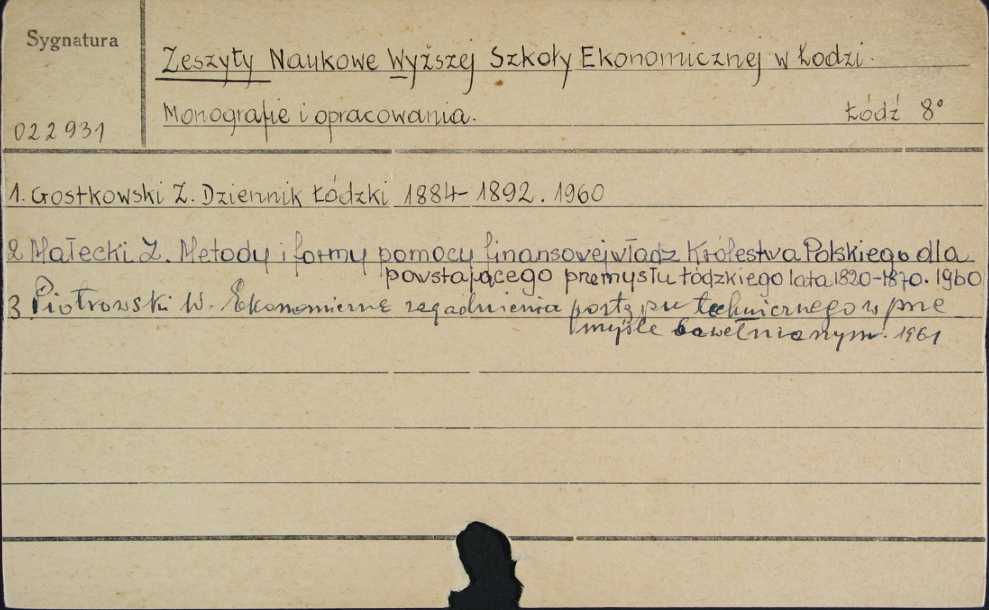 Sygnatura
Zeszyty Naukowe Wyższej Szkoły Ekonomicznej w Łodzi.
Monografie i opracowania. Łódź 8°
022931
1. Gostkowski Z. Dziennik Łódzki 1884-1892. 1960
2 Małecki Z. Metody i formy pomocy finansowej władz Królestwa Polskiego dla
powstającego przemysłu łódzkiego lata 1820-1870. 1960
3. Piotrowski W. Ekonomiczne zagadnienia postępu technicznego w prze
myśle bawełnianym. 1961